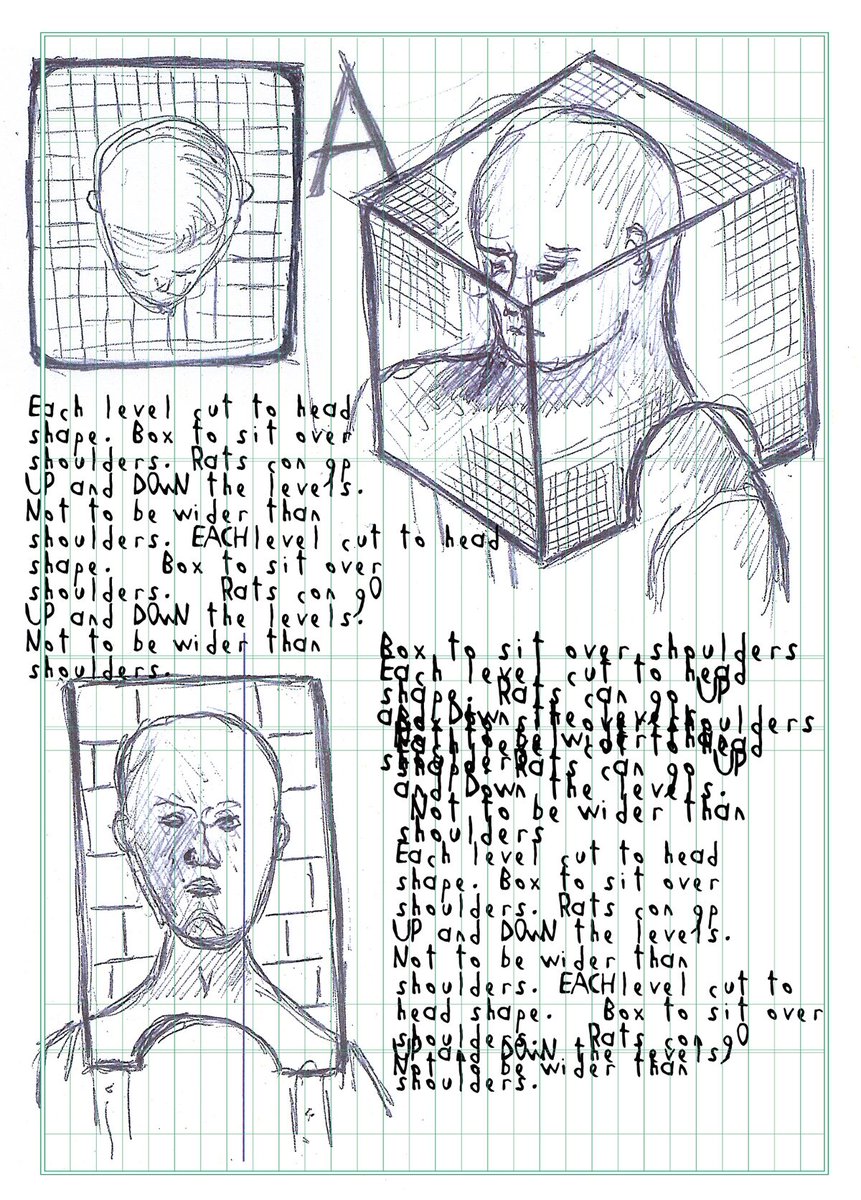 A
Each level cut to head
shape. Box to sit over
shoulders. Rats con gp
UP and DOWN the levels.
Not to be wider than
shoulders. EACH level cut to head
shape. Box to sit over
shoulders. Rats con gO
UP and DOWN the levels.
Not to be wider than
shoulders.
Box to sit over shoulders
Each level cut to head
shape. Rats can go UP
and Down the levels.
Box to sit over shoulders
Not to be wider than
Each level cut to head
shoulders
shape. Rats can go UP
and Down the levels.
Not to be wider than
shoulders
Each level cut to head
shape. Box to sit over
shoulders. Rats con gp
UP and DOWN the levels.
Not to be wider than
shoulders. EACH level cut to
head shape. Box to sit over
shoulders. Rats con gO
UP and DOWN the levels.
Not to be wider than
shoulders.